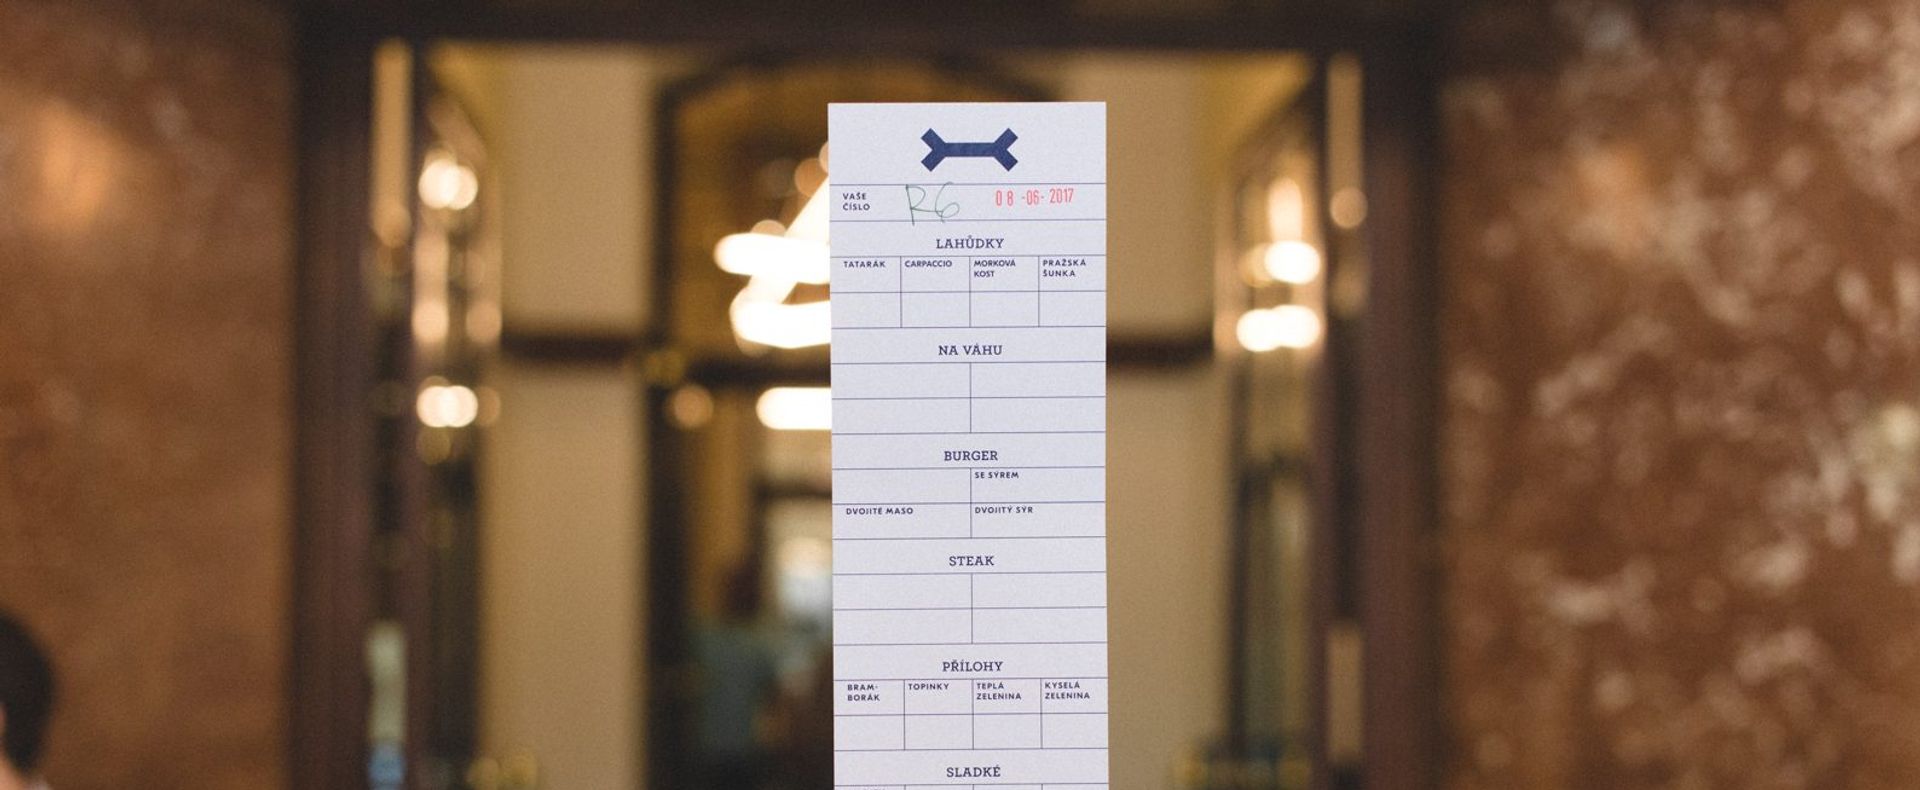 VAŠE ČÍSLO R6 08-06-2017
LAHŮDKY
TATARÁK CARPACCIO MORKOVÁ KOST PRAŽSKÁ ŠUNKA
NA VÁHU
BURGER
SE SÝREM
DVOJITÉ MASO DVOJITÝ SÝR
STEAK
PŘÍLOHY
BRAM-BORÁK TOPINKY TEPLÁ ZELENINA KYSELÁ ZELENINA
SLADKÉ